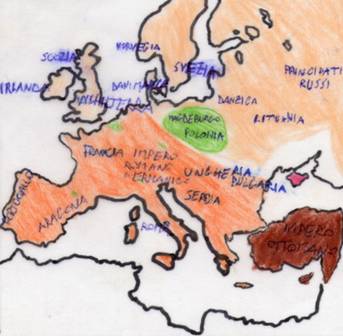 SCOZIA
NORVEGIA
SVEZIA
PRINCIPATI
RUSSI
IRLANDA
DANIMARCA
INGHILTERRA
DANZICA
LITUANIA
MAGDEBURGO
POLONIA
FRANCIA
IMPERO
ROMANO
GERMANICO
UNGHERIA
BULGARIA
SERBIA
PORTOGALLO
ARAGONA
ROMA
IMPERO
OTTOMANO